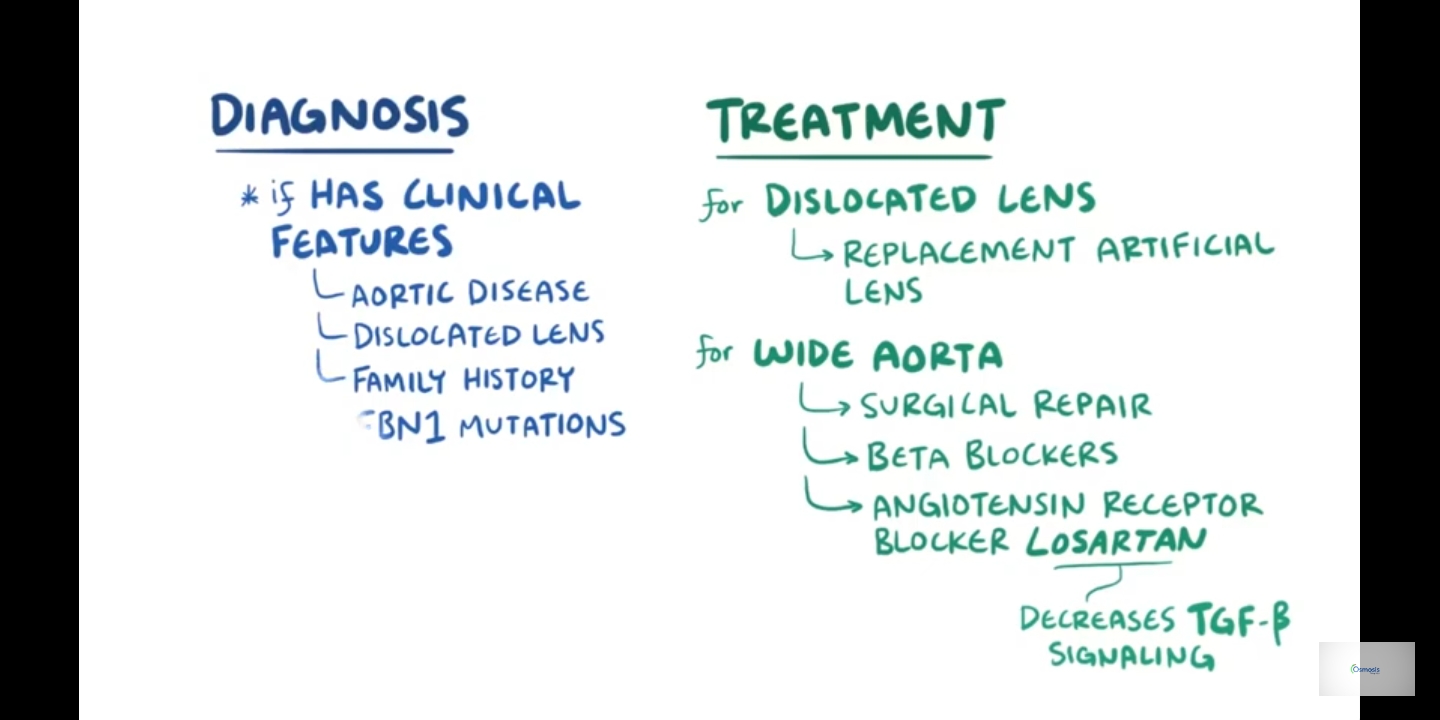 DIAGNOSIS
* if HAS CLINICAL
FEATURES
AORTIC DISEASE
DISLOCATED LENS
FAMILY HISTORY
FBN1 MUTATIONS
TREATMENT
for DISLOCATED LENS
REPLACEMENT ARTIFICIAL
LENS
for WIDE AORTA
SURGICAL REPAIR
BETA BLOCKERS
ANGIOTENSIN RECEPTOR
BLOCKER LOSARTAN
DECREASES TGF-β
SIGNALING
Osmosis